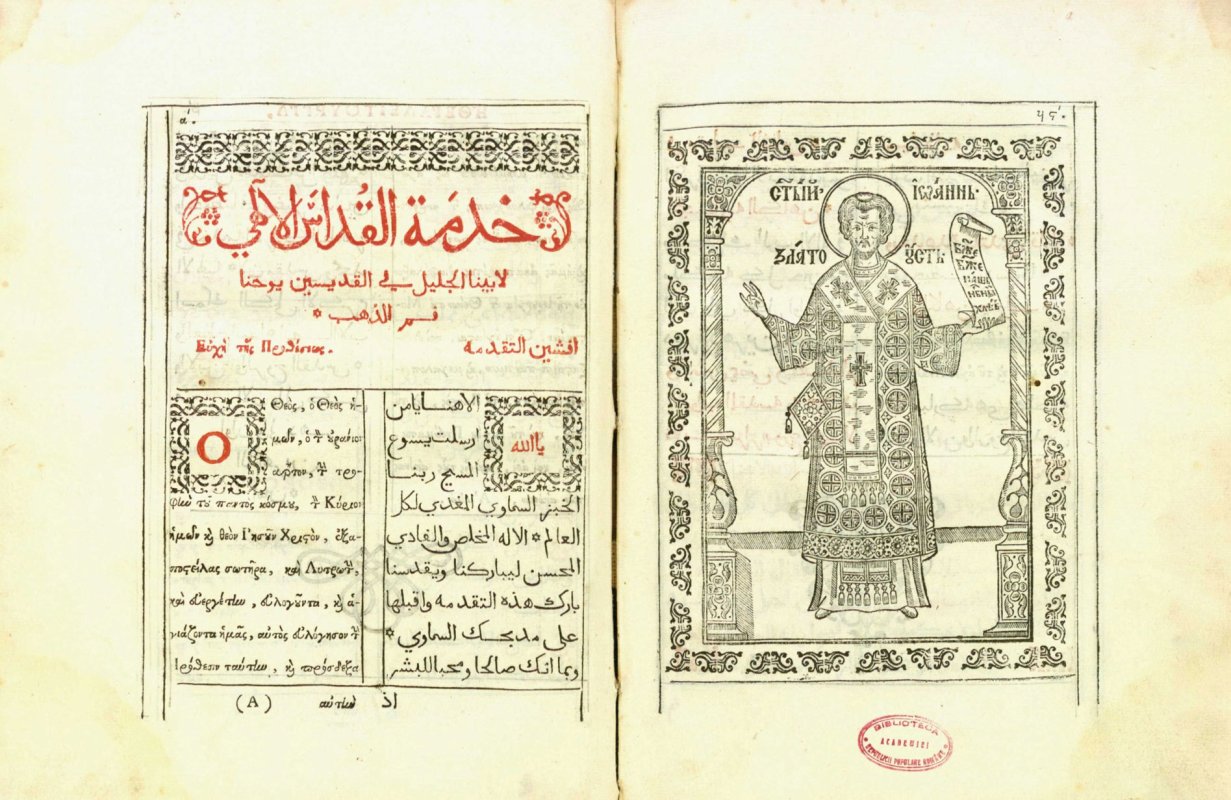 α.
خدمة القداس الالهي
لابينا الجليل في القديسين يوحنا
فم الذهب *
Εὐχὴ τῆς Προθέσεως.
افشين التقدمه
Ο
Θεὸς, ὁ Θεὸς ἡ-
μῶν, ὁ τ̀ οὐράνιον
ἄρτον, τ̀ τρο-
φὴν τοῦ παντὸς κόσμου, τ̀ Κύριον
ἡμῶν κ̀ θεὸν Ἰησοῦν Χριςὸν, ἐξα-
ποςείλας σωτῆρα, καὶ Λυτρωτ̀,
καὶ εὐεργέτην, εὐλογοῦντα, κ̀ ἁ-
γιάζοντα ἡμᾶς, αὐτὸς εὐλόγησον τ̀
Πρόθεσιν ταύτην, κ̀ πρόσδεξαι
(Α) αὐτὴν
ياالله
الاهنا يامن
ارسلت يسوع
المسيح ربنا
الخبز السماوي المغدي لكل
العالم * الاله المخلص والفادي
المحسن ليباركنا ويقدسنا
بارك هذه التقدمه واقبلها
على مدبحك السماوي *
وبما انك صالحا ومحبا للبشر
اذ
СТ͠ЫЙ. ІѠА́ННЬ
ЗЛА́ТО ОУ́СТЬ
БЖ҃Е
БЖ҃Е
НАШЬ
НБ҃НЫ
ХЛѢ́
BIBLIOTECA
ACADEMIEI
REPUBLICII POPULARE ROMÂNE